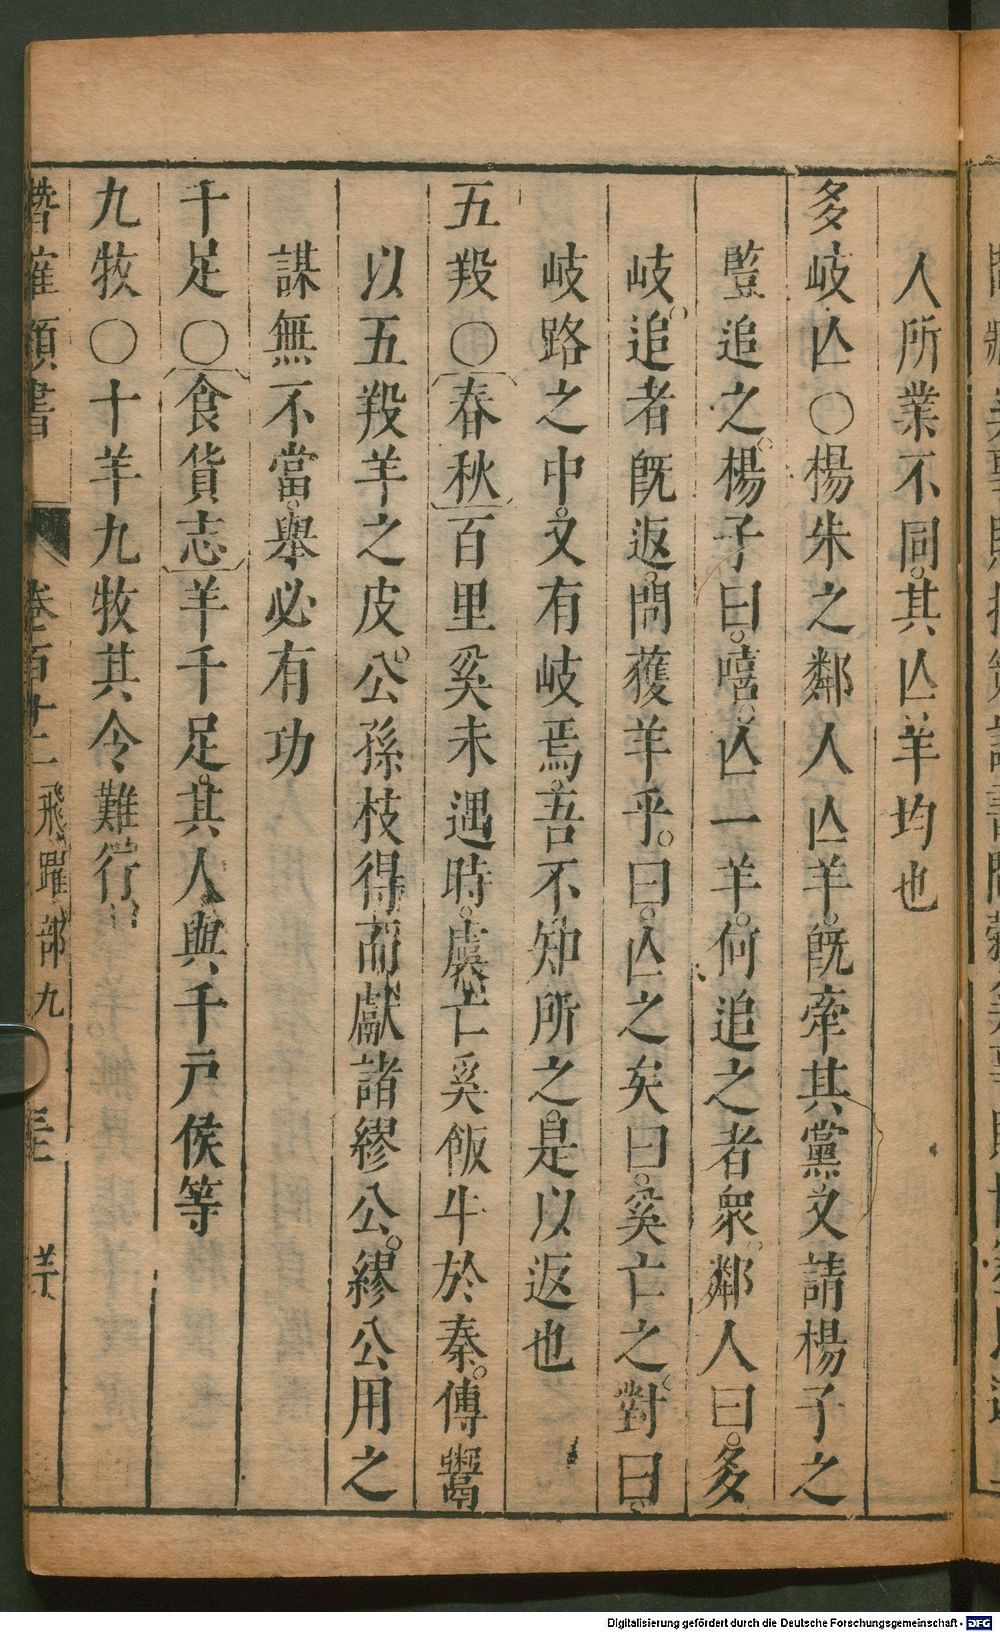 人所業不同。其亾羊均也
多岐亾〇楊朱之鄰人亾羊。旣牽其黨。又請楊子之
豎追之。楊子曰。嘻。亾一羊。何追之者衆。鄰人曰。多
岐。追者旣返。問獲羊乎。曰。亾之矣。曰。奚亡之。對曰。
岐路之中。又有岐焉。吾不知所之。是以返也
五羖〇春秋百里奚未遇時。虞亡奚飯牛於秦。傳鬻
以五羖羊之皮。公孫枝得而獻諸繆公。繆公用之
謀無不當。舉必有功
千足〇食貨志羊千足。其人與千戸侯等
九牧〇十羊九牧其令難行
類書 卷百廿二 飛躍部九 羊
Digitalisierung gefördert durch die Deutsche Forschungsgemeinschaft - DFG